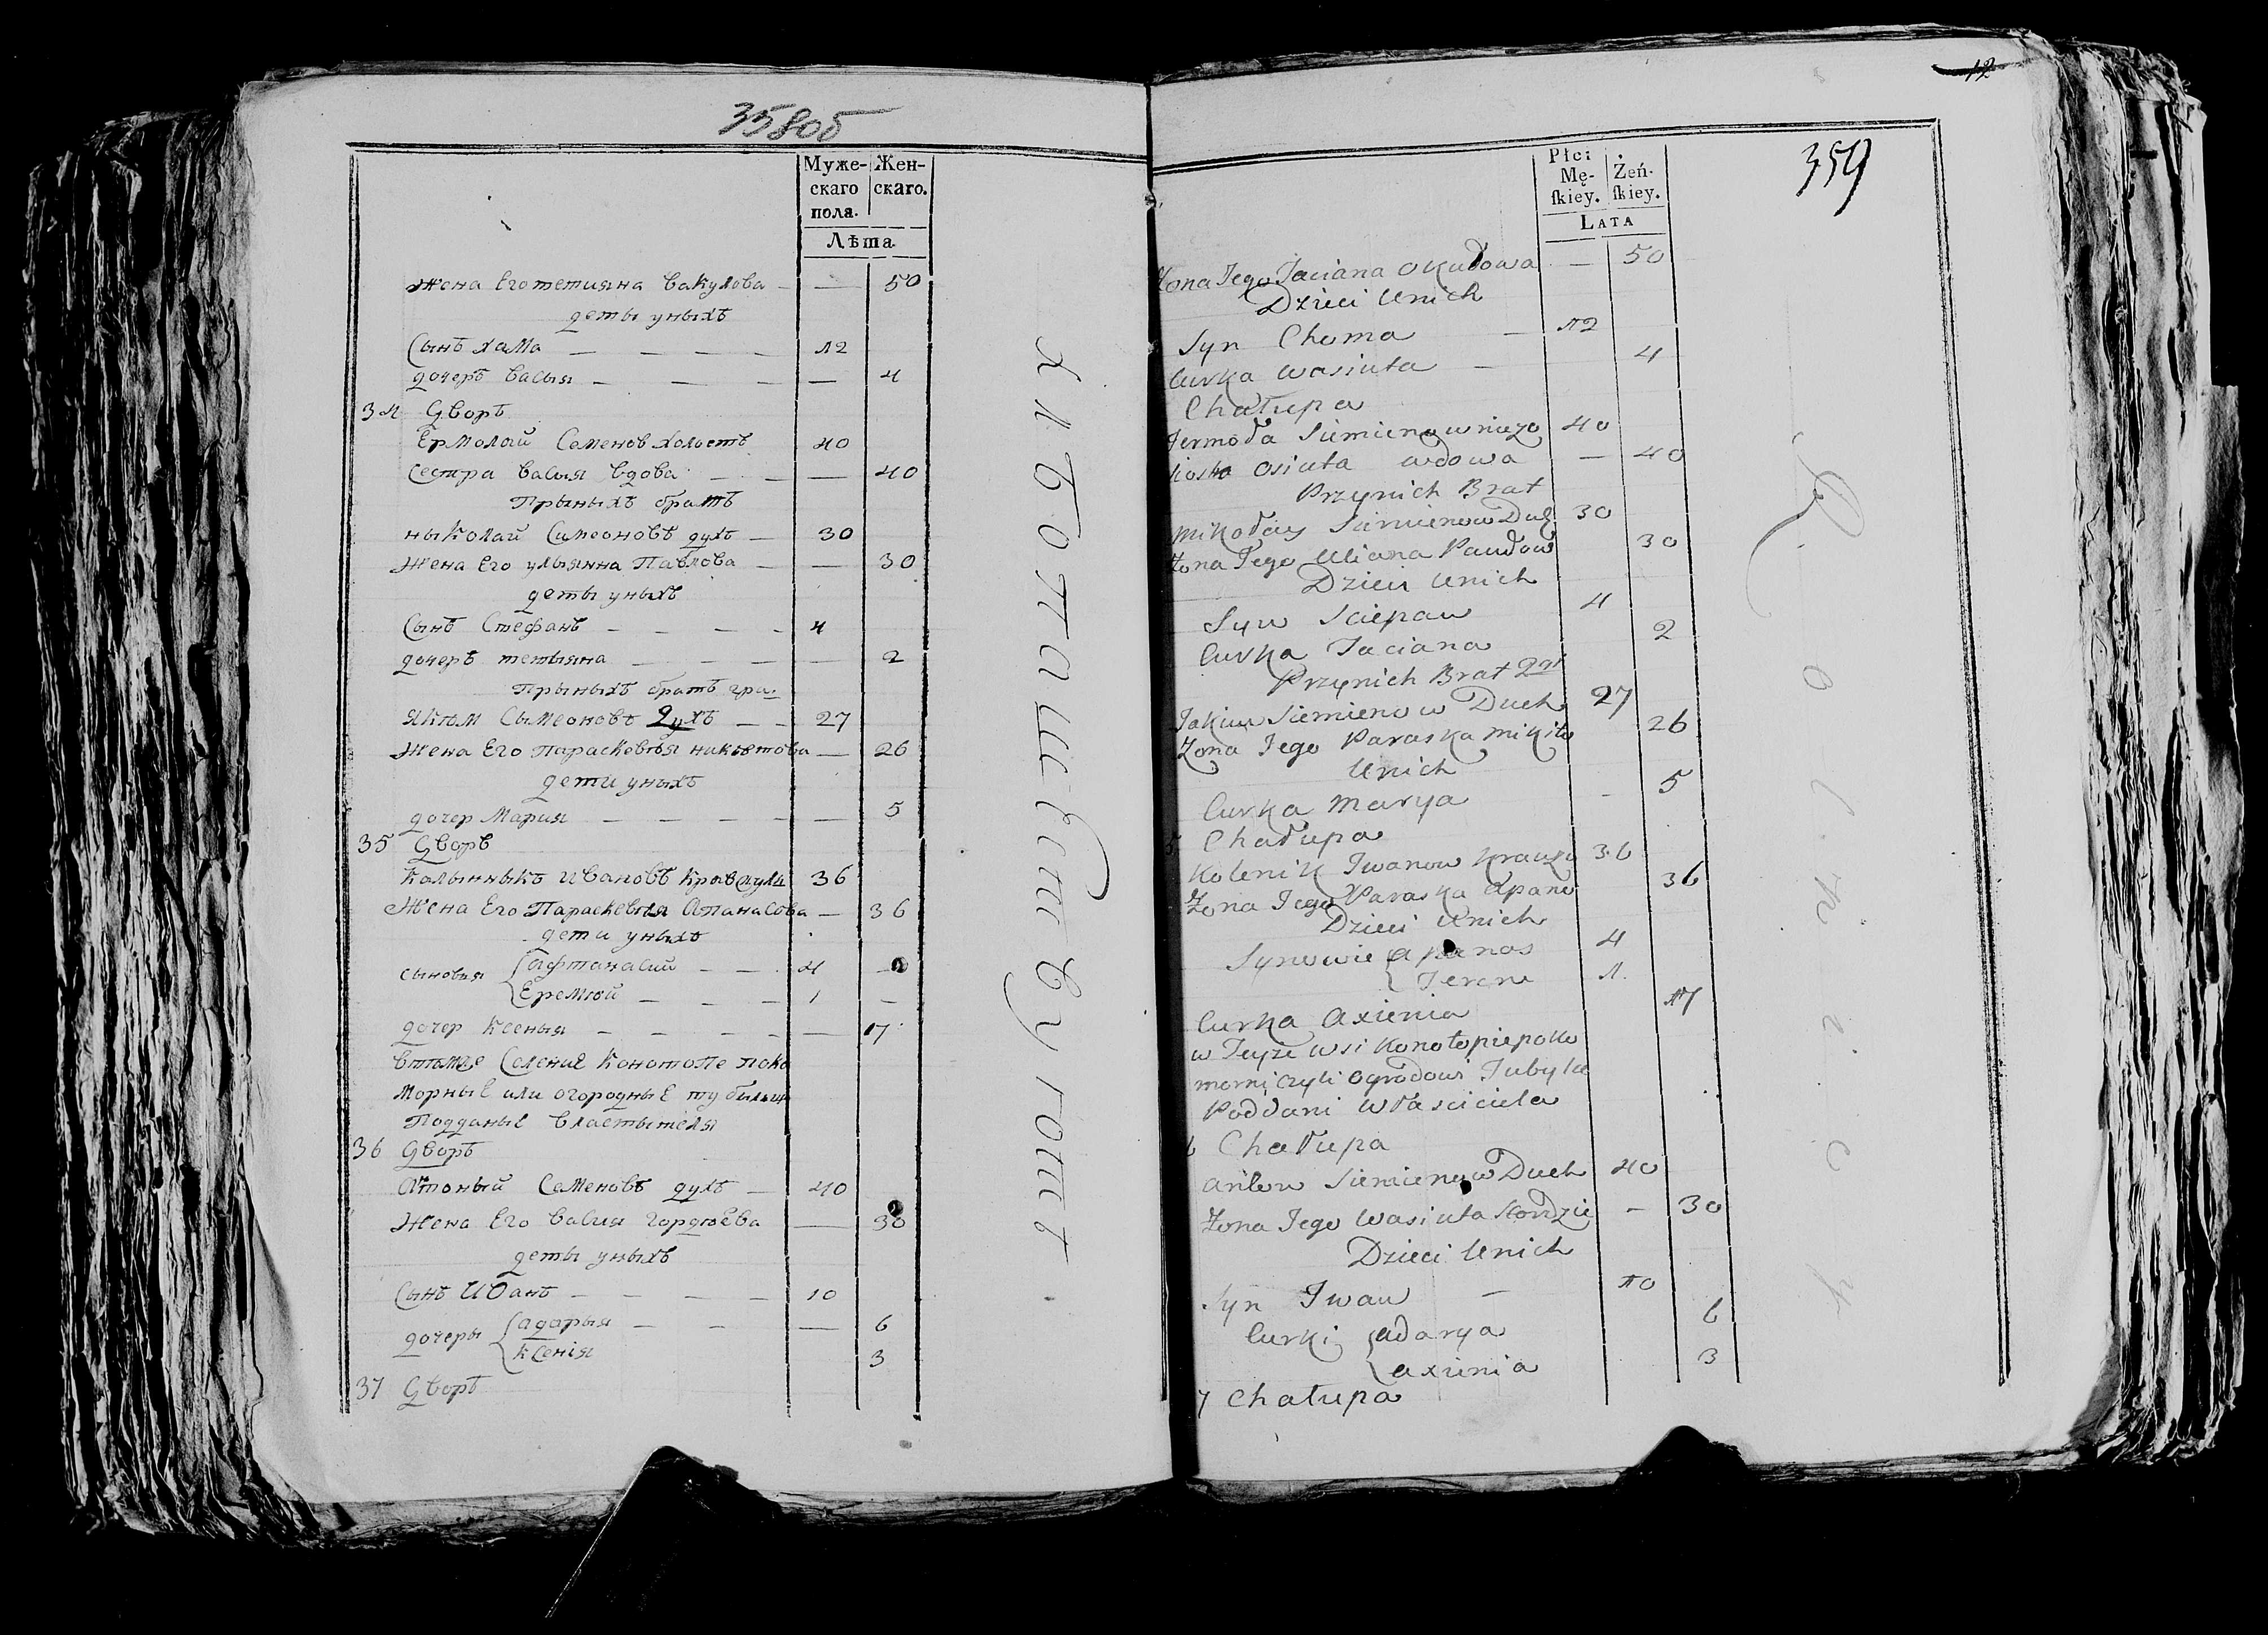 358об
Муже- Жен-
скаго скаго.
пола.
Лѣта
жена Его тетияна вакулова — 50
деты уныхъ
Сынъ хама — 12
дочеръ васыя — 4
34 Дворъ
Ермолай Семеновъ холостъ 40
Сестра васыя вдова — 40
Прыныхъ братъ
ныколай Симеоновъ духъ — 30
Жена Его ульянна Павлова — 30
деты уныхъ
Сынъ Стефанъ — 4
дочеръ тетыяна — 2
Прыныхъ братъ гри.
якюм Сымеоновъ духъ — 27
Жена Его парасковья никытова — 26
дети уныхъ
дочер Мария — 5
35 Дворъ
калынныкъ ивановъ 36
Жена Его Параскевья Апанасова — 36
дети уныхъ
сыновья { афтанасий — 4 —
Еремюй — 1 —
дочер ксеныя — 17
втомже Селение конотопе поко
морныЕ или огородныЕ ту
ПодданыЕ властытеля
36 Дворъ
Антоный Семеновъ духъ — 40
Жена Его васия гордюева — 30
деты уныхъ
Сынъ ИВанъ — 10
дочеры { адарыя — 6
ксенія 3
37 Дворъ
хлѣбопашествуютъ
12
359
Płci
Mę- Żeń-
ſkiey. ſkiey.
LATA
Żona Jego Taciana — 50
Dzieci Unich
Syn Choma — 12
Curka Wasiuta — 4
Chałupa
Jermoła Siemienow 40
Osiuta wdowa — 40
Przynich Brat
Mikołay Siemienow Duch 30
Żona Jego Uliana Pawłow 30
Dzieci Unich
Syn Sciepan 4
Curka Taciana 2
Przynich Brat 2gi
Jakim Siemienow Duch 27
Żona Jego Paraska Mikito 26
Unich
Curka Marya - 5
5 Chałupa
Kolenik Iwanow 36
Żona Jego Paraska Apano 36
Dzieci Unich
Synowie { Apanos 4
1
Curka Axienia 17
w Teyże wsi Konotopie poko
morni czyli Ogrodowi
Poddani Własciciela
6 Chałupa
Anton Siemienow Duch 40
Żona Jego Wasiuta — 30
Dzieci Unich
Syn Iwan — 10
Curki { Adarya 6
Axienia 3
7 Chałupa
Rolnicy